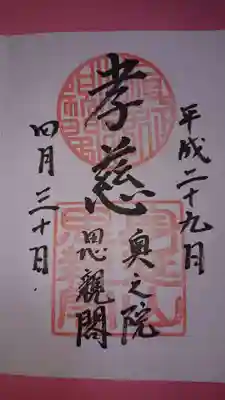 平成二十九月
孝慈
奥之院
思親閣
四月三十日